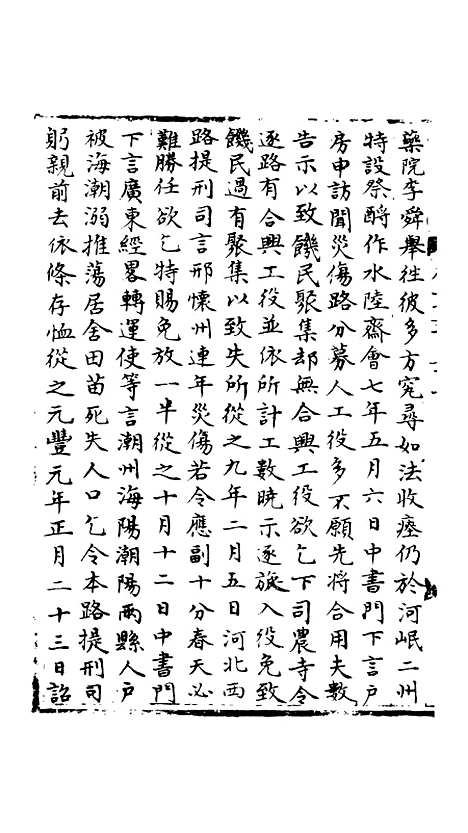 藥院李舜舉往彼多方寃尋如法收瘞仍於河岷二州
特設祭酹作水陸齋會七年五月六日中書門下言户
房申訪聞災傷路分募人工役多不願先將合用夫數
告示以致饑民聚集却無合興工役欲乞下司農寺令
逐路有合興工役並依所計工數曉示逐旋入役免致
饑民過有聚集以致失所從之九年二月五日河北西
路提刑司言邢懷州連年災傷若令應副十分春夭必
難勝任欲乞特賜免放一半從之十月十二日中書門
下言廣東經畧轉運使等言潮州海陽潮陽兩縣人户
被海潮溺推蕩居舍田苗死失人口乞令本路提刑司
躬親前去依條存恤從之元豐元年正月二十三日詔